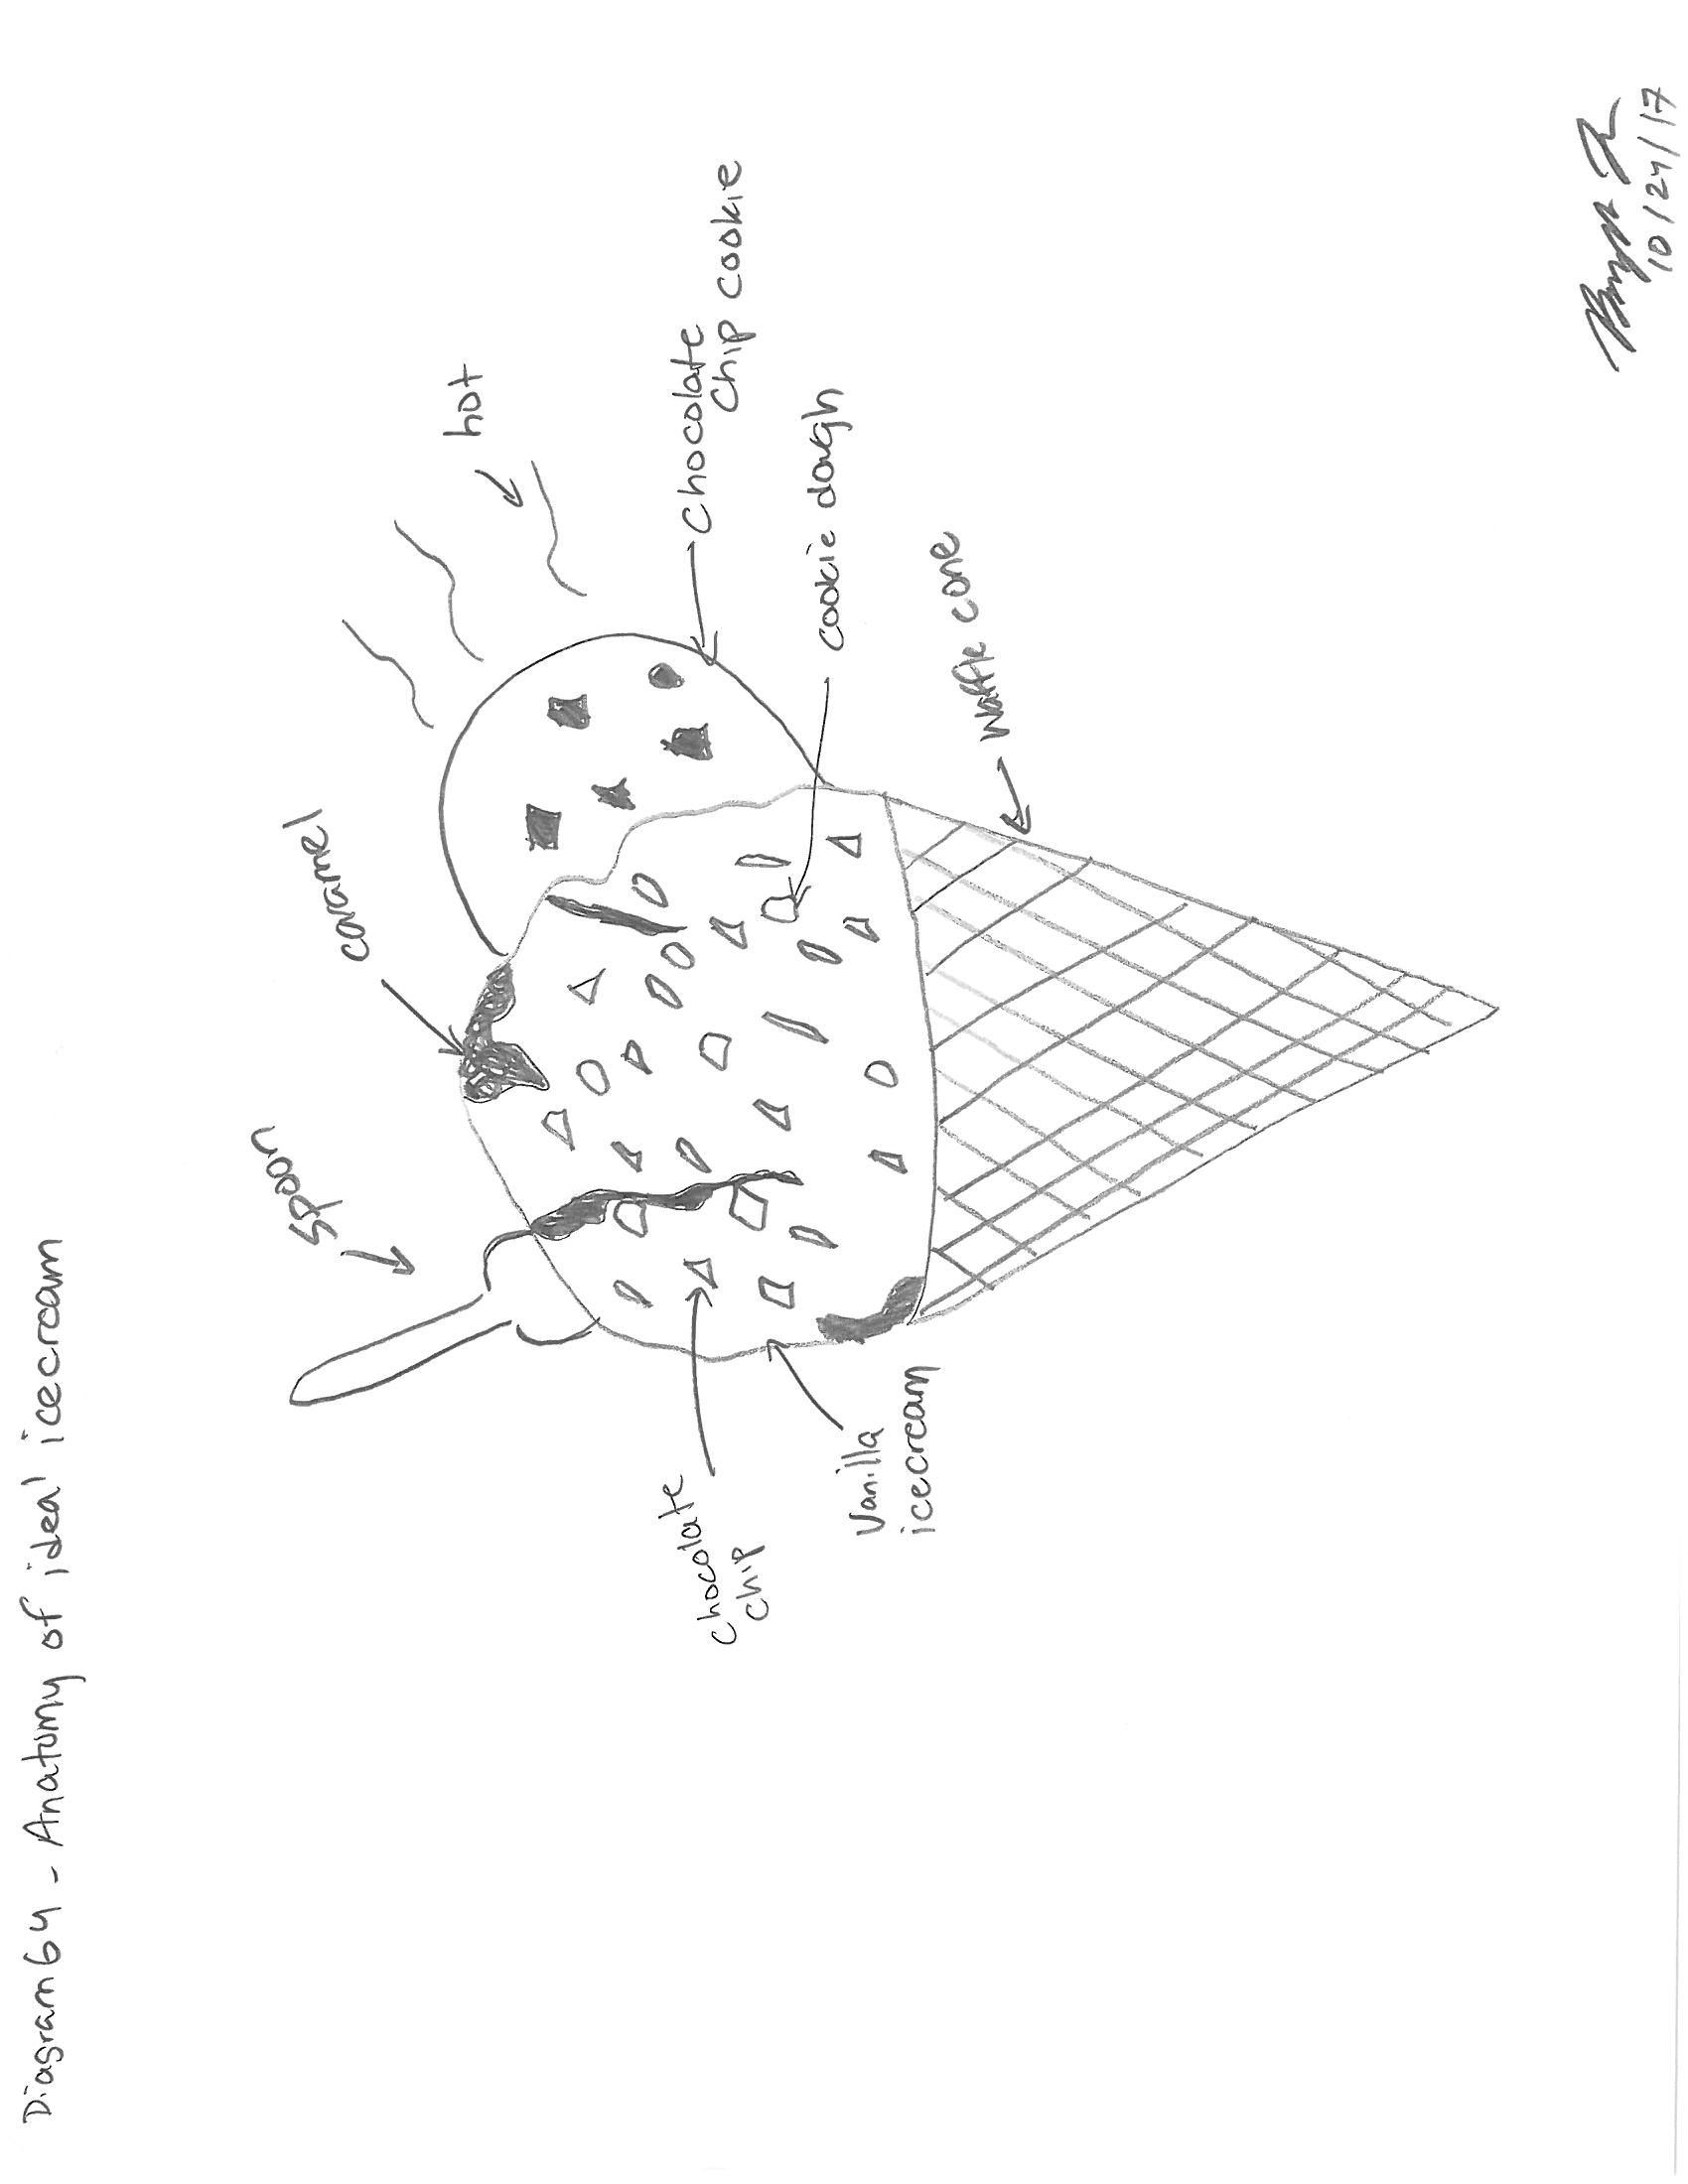 Diagram 64 - Anatomy of ideal icecream
spoon
caramel
hot
chocolate
chip cookie
cookie dough
waffle cone
chocolate
chip
vanilla
icecream
10/24/17